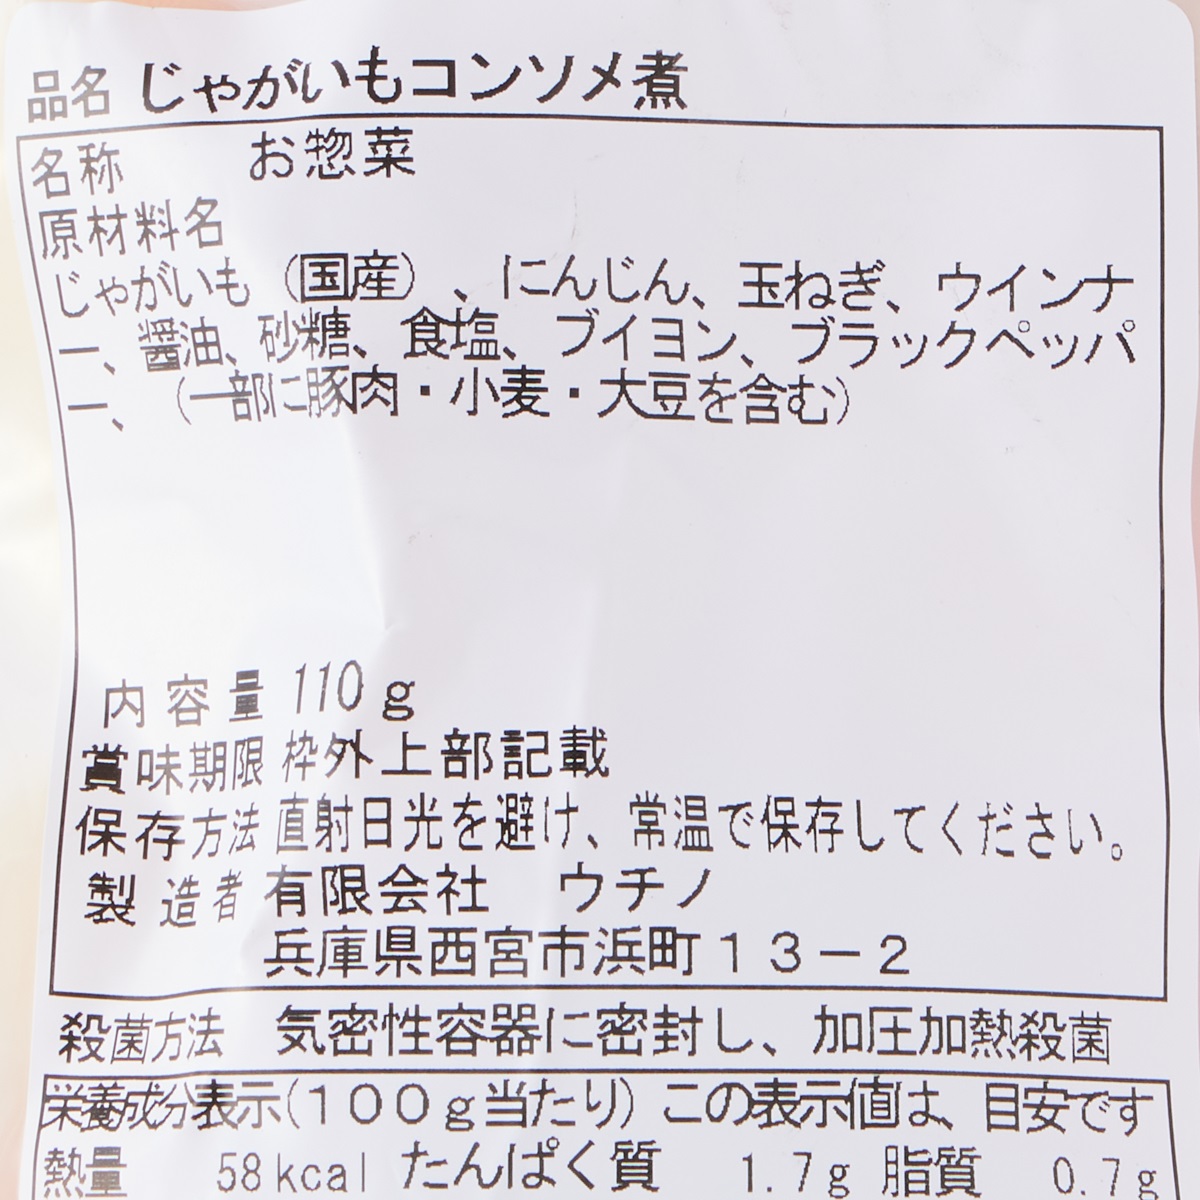 品名 じゃがいもコンソメ煮
名称 お惣菜
原材料名
じゃがいも（国産）、にんじん、玉ねぎ、ウインナ
ー、醤油、砂糖、食塩、ブイヨン、ブラックペッパ
ー、（一部に豚肉・小麦・大豆を含む）
内容量 110g
賞味期限 枠外上部記載
保存方法 直射日光を避け、常温で保存してください。
製造者 有限会社 ウチノ
兵庫県西宮市浜町１３－２
殺菌方法 気密性容器に密封し、加圧加熱殺菌
栄養成分表示(１００ｇ当たり)この表示値は、目安です
熱量 58kcal たんぱく質 1.7g 脂質 0.7g